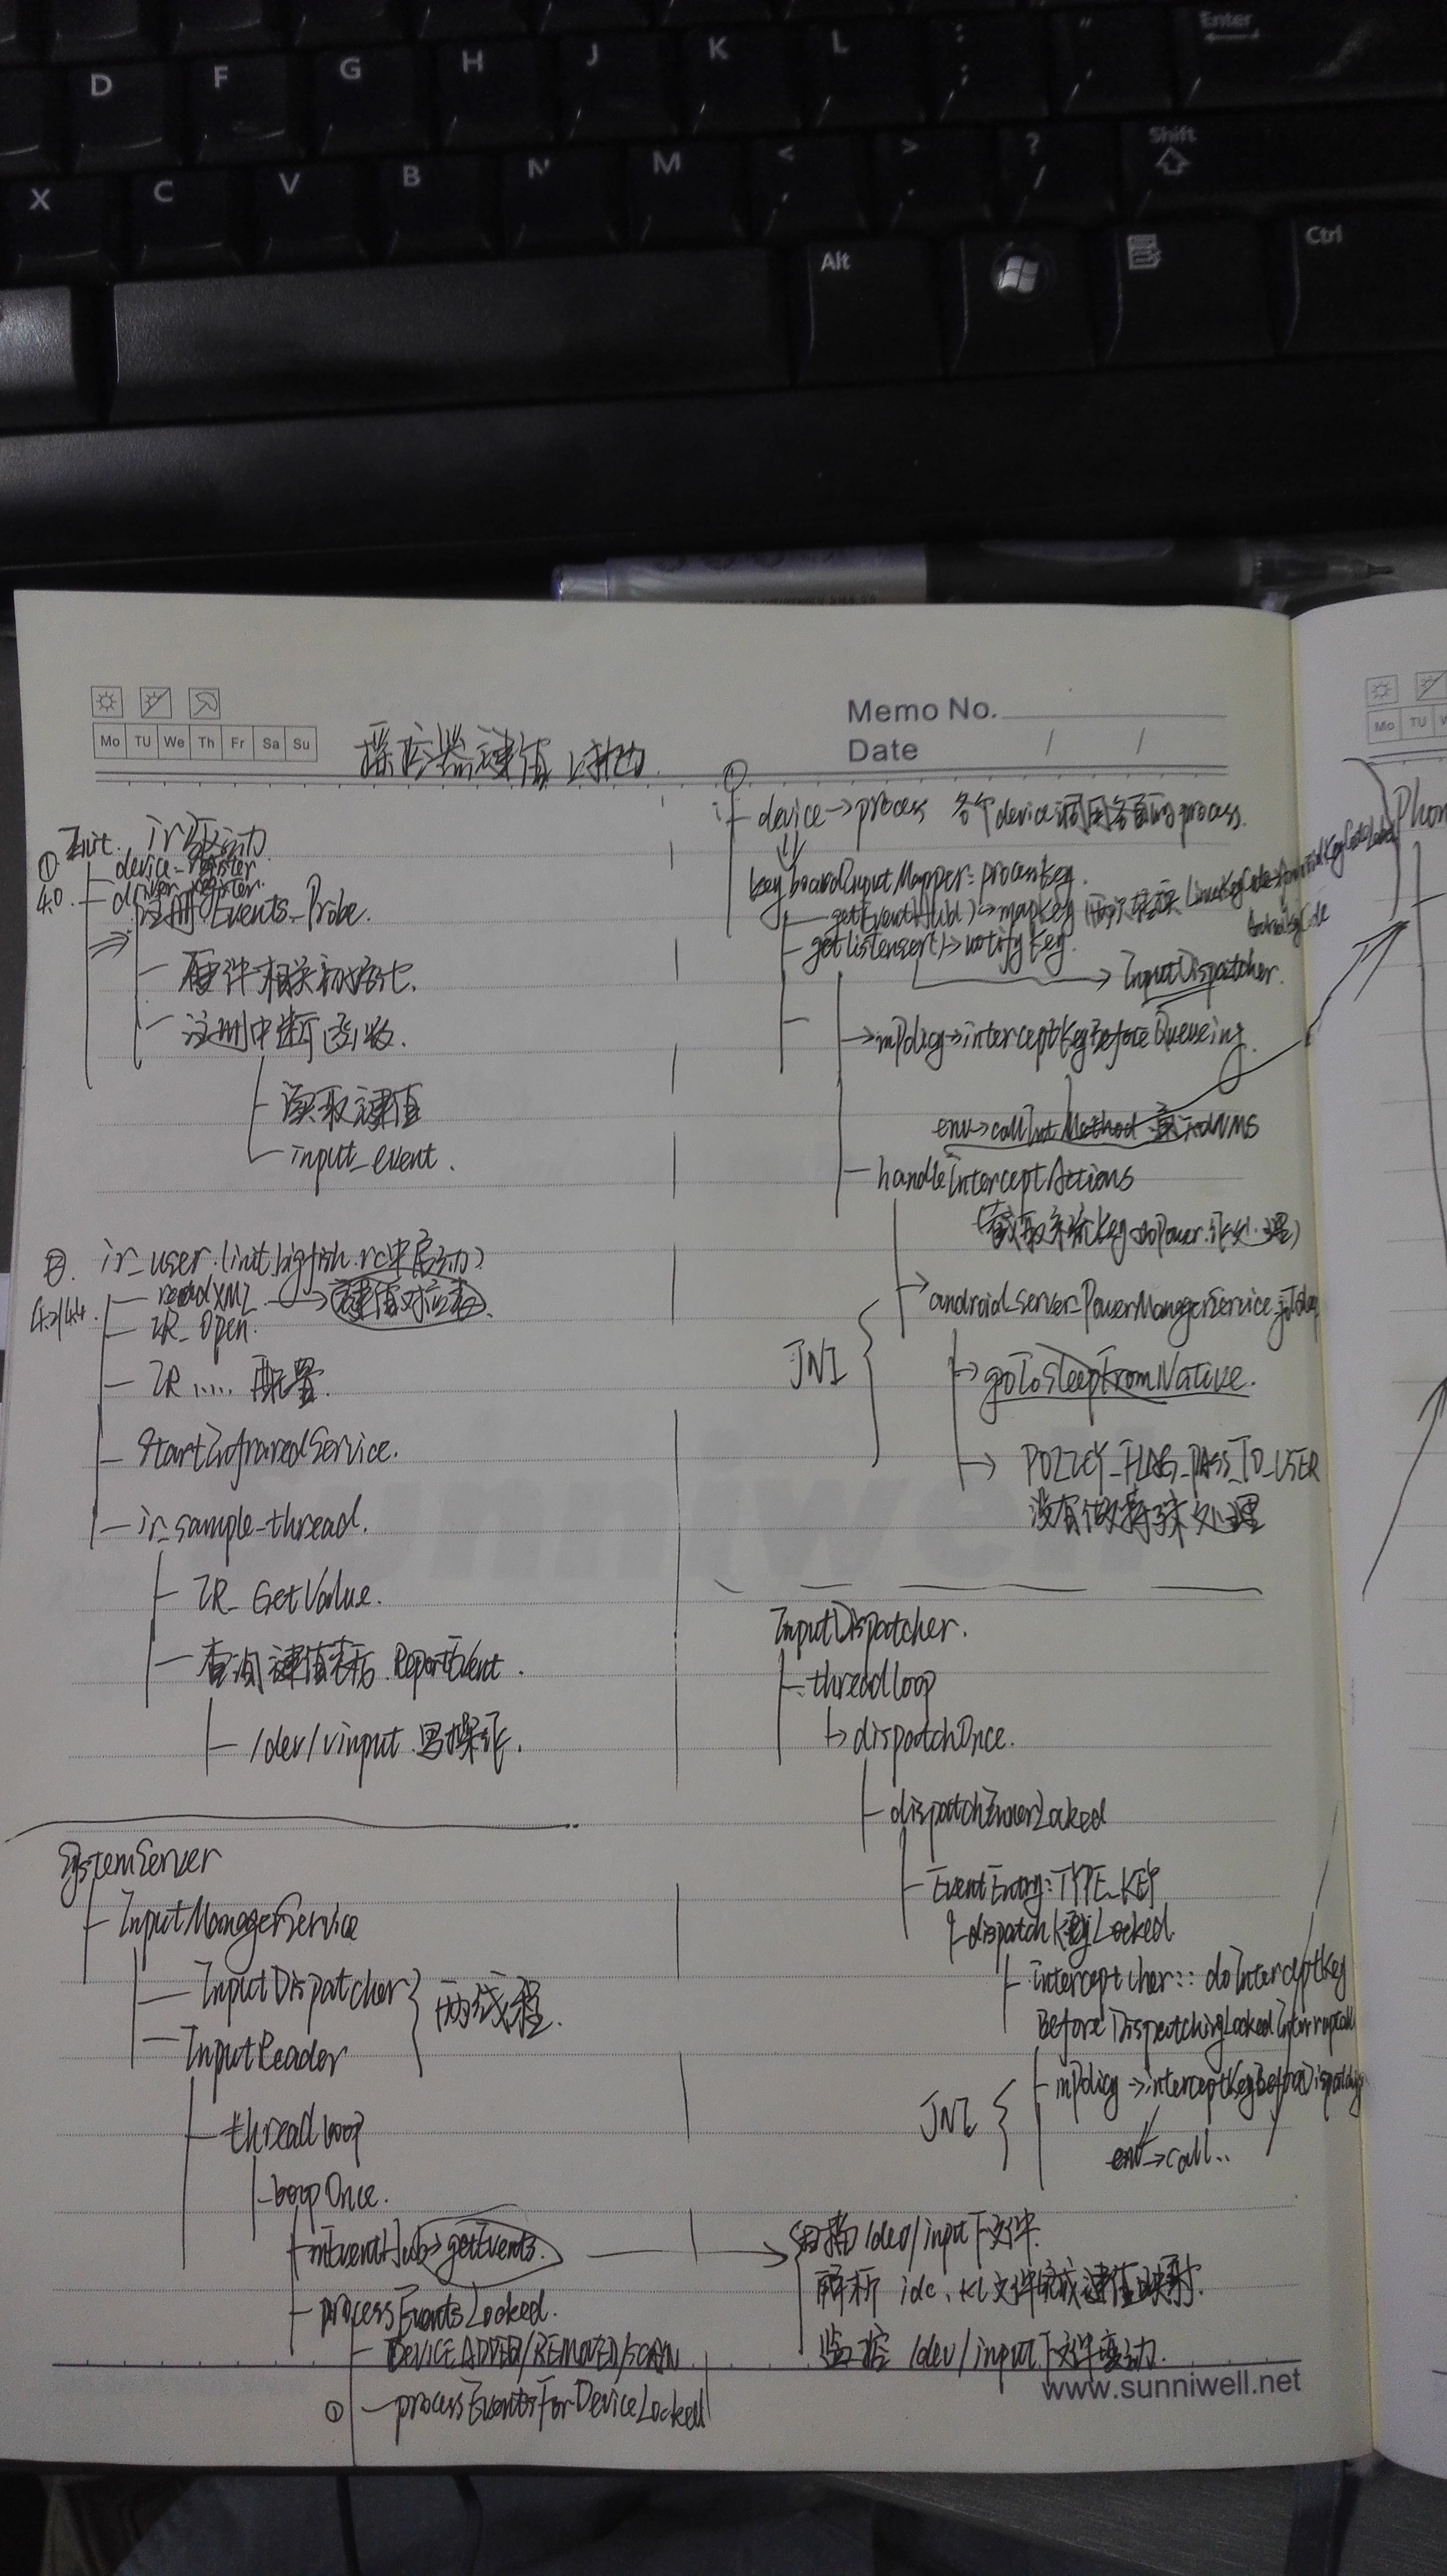 D F G H J K L : ; " Enter
X C V B N M < , > . ? / Shift
Alt Ctrl
Memo No.
Date / /
Mo TU We Th Fr Sa Su
遥控器键值
① Init. ir驱动
4.0
device_register
driver_register
注册 Events_Probe.
硬件相关初始化.
注册中断函数.
读取键值
input_event.
② ir_user.(init.bigfish.rc中启动)
4.2/4.4
readXML → 键值对应表
IR_Open.
IR ..... 配置.
StartInfraredService.
ir_sample_thread.
IR_GetValue.
查询键值表后 ReportEvent.
/dev/vinput 写操作.
SystemServer
InputManagerService
InputDispatcher
InputReader
两线程.
threadloop
loopOnce.
mEventHub→getEvents.
processEventsLocked.
DEVICE ADDED/REMOVED/SCAN
① processEventsForDeviceLocked
①
device→process 各个device调用各自的process.
KeyboardInputMapper::processKey.
getEventHub()→mapKey (两次转换 LinuxKeyCode→AndroidKeyCodeLabel
AndroidKeyCode
getListener()→notifyKey.
→ InputDispatcher.
→mPolicy→interceptKeyBeforeQueueing.
env→callIntMethod WMS
handleInterceptActions
(截取系统Key 如Power. 处理)
JNI
android_server_PowerManagerService_goToSleep
goToSleepFromNative.
→ POLICY_FLAG_PASS_TO_USER
没有做特殊处理
InputDispatcher.
threadloop
dispatchOnce.
dispatchInnerLocked
EventEntry::TYPE_KEY
dispatchKeyLocked
intercepther::doInterceptKey
BeforeDispatchingLockedInterruptable
JNI
mPolicy→interceptKeyBeforeDispatching
env→call..
扫描/dev/input下文件.
解析 idc、kl文件完成键值映射.
监控 /dev/input下文件变动.
www.sunniwell.net
Mo TU
Phon